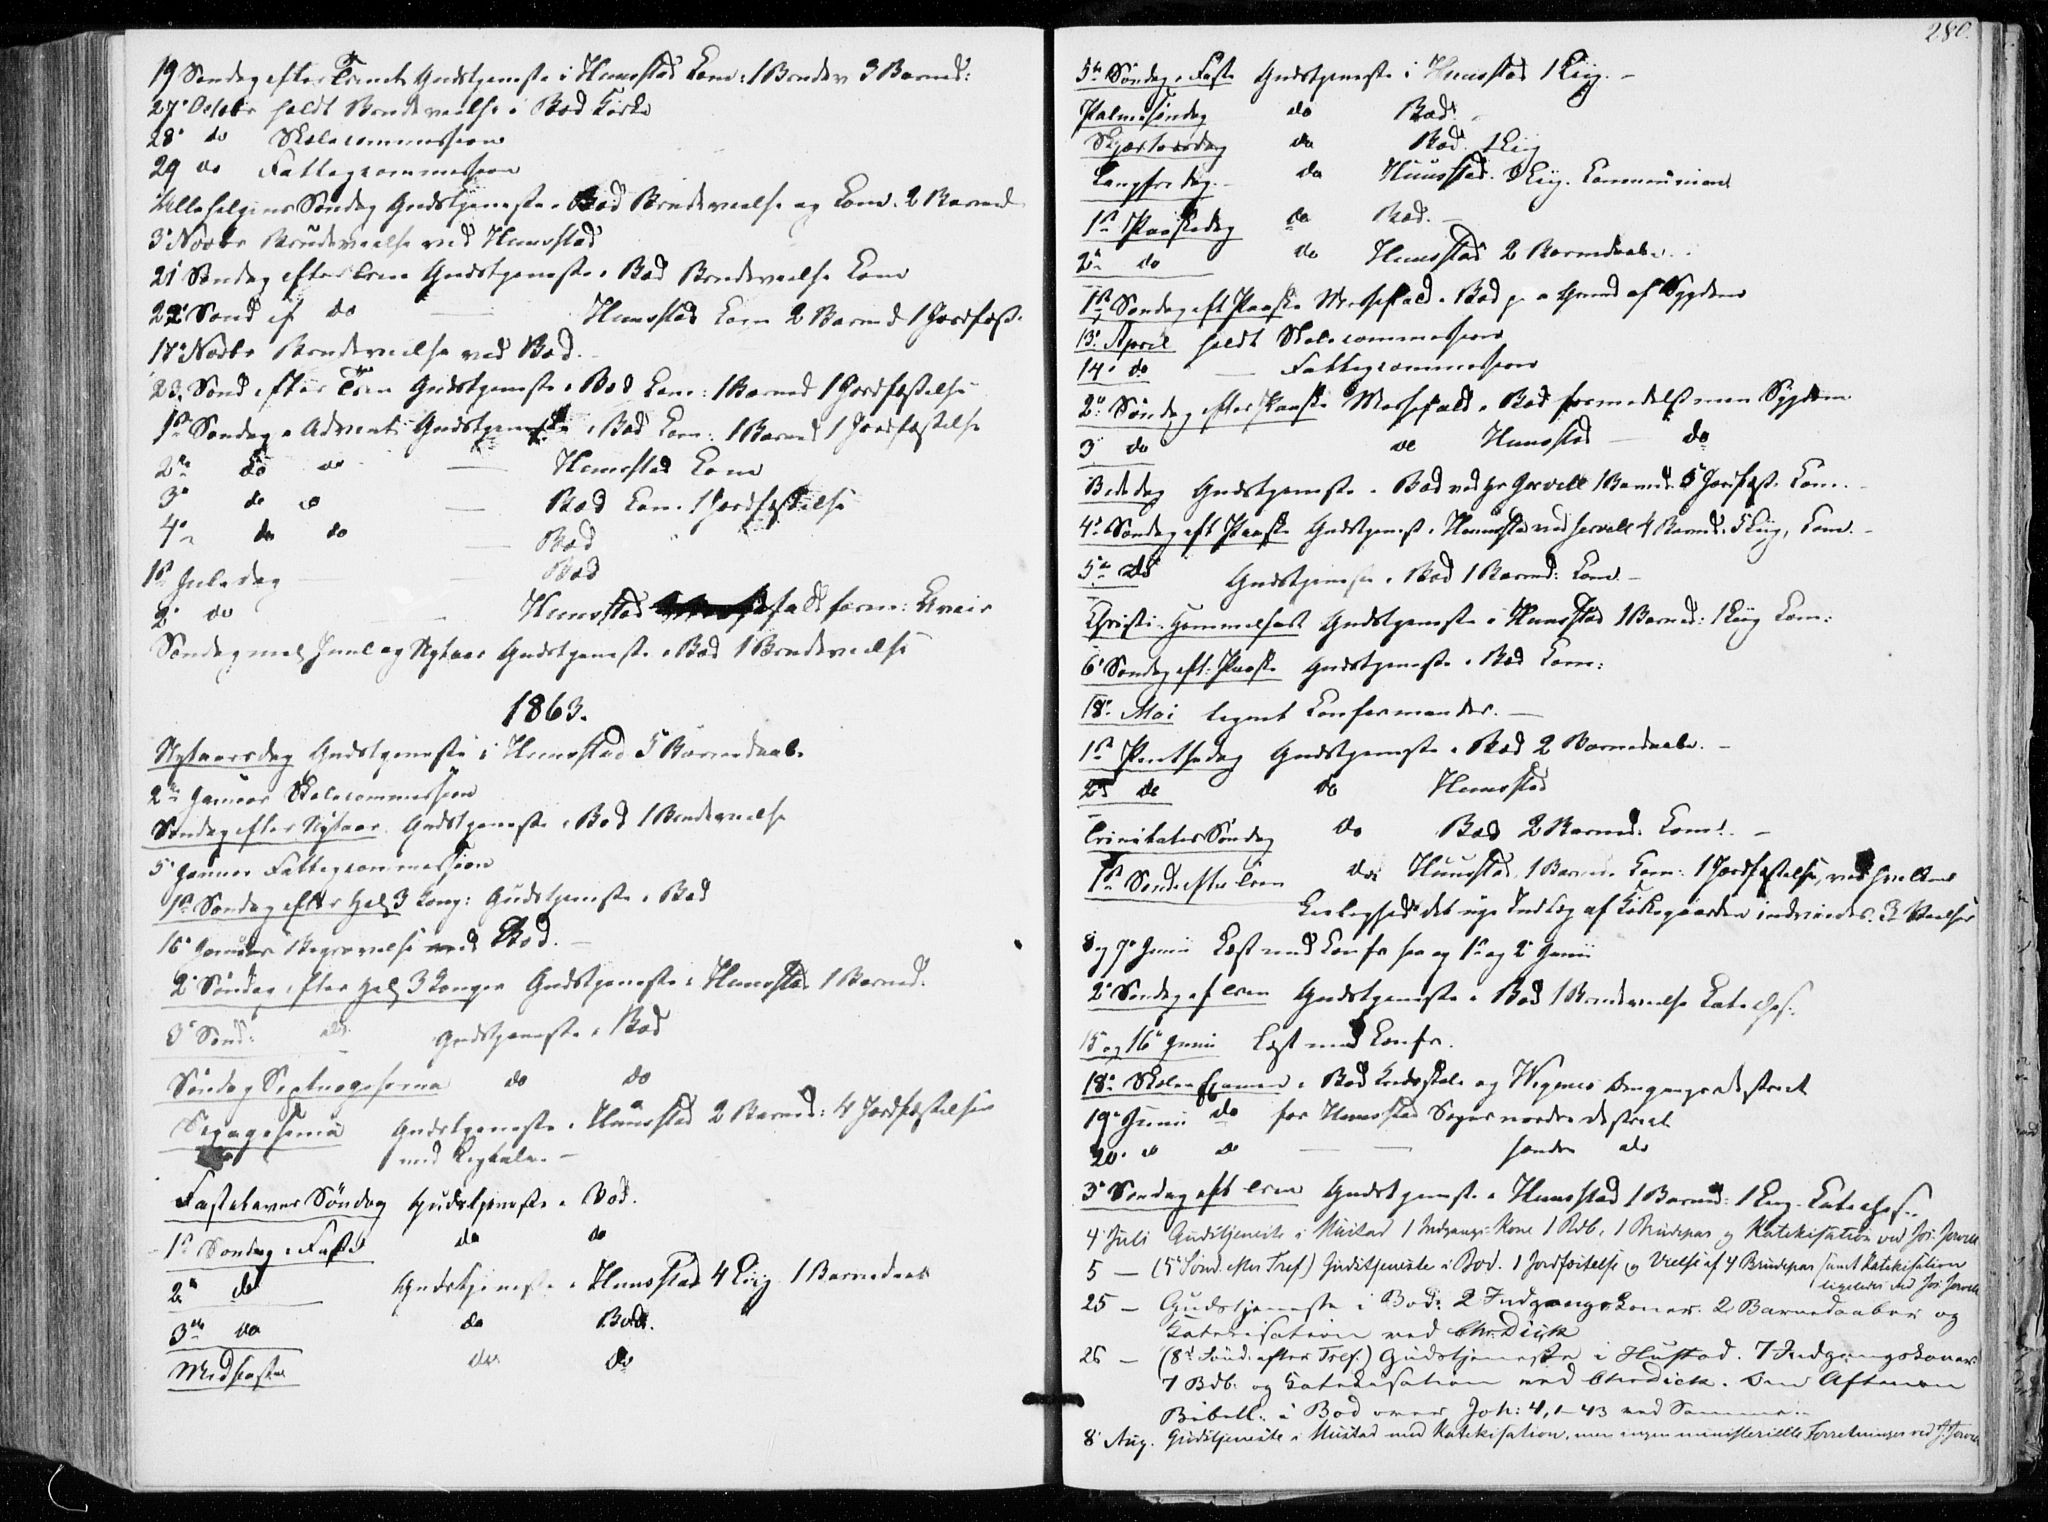 19 Søndag efter Trinit Gudstjeneste i Huustad Com: 1 Brudev 3 Barned:
27 Octobr holdt Brudevielse i Bod Kirke
28 do Skolecommission
29 do Fattigcommission
Allehelgens Søndag Gudstjeneste i Bod Brudevielse og Com. 2 Barned
3 Novbr Brudevielse ved Huustad
21 Søndag efter Trin Gudstjeneste i Bod Brudevielse Com
22 Sønd ef do — Huustad Com 2 Barned 1 Jordfæst.
17 Novbr Brudevielse ved Bod.
23 Sønd efter Trin Gudstjeneste i Bod Com: 1 Barned 1 Jordfæstelse
1ste Søndag i Advent Gudstjeneste i Bod Com: 1 Barned 1 Jordfæstelse
2den do do — Huustad Com
3die do do — Bod Com. 1 Jordfæstelse
4de do do — Bod
1ste Juledag — Bod
2 do Huustad fald form: Uveir
Søndag mel Juul og Nytaar Gudstjeneste i Bod 1 Brudevielse
1863.
Nytaarsdag Gudstjeneste i Huustad 5 Barnedaab
2den Januar Skolecommission
Søndag efter Nytaar Gudstjeneste i Bod 1 Brudevielse
5 Januar Fattigcommission
1ste Søndag efter Hel 3 Kong: Gudstjeneste i Bod
16 Januar Begravelse ved Bod. —
2 Søndag efter Hel 3 Konger Gudstjeneste i Huustad 1 Barned.
3 Sønd: do Gudstjeneste i Bod
Søndag Septuagesima do do
Sexagesima Gudstjeneste i Huustad 2 Barned: 4 Jordfæstelser
med Ligtale. —
Fastelavns Søndag Gudstjeneste i Bod.
1ste Søndag i Faste do do
2den do Gudstjeneste i Huustad 4 Liig 1 Barnedaab
3die do do Bod.
Midfaste do do
280.
5te Søndag i Faste Gudstjeneste i Huustad 1 Liig. —
Palmesøndag do Bod.
Skjærtorsdag do Bod. 1 Liig
Langfredag. — do Huustad. 3 Liig. Communion
1ste Paaskedag do Bod. —
2den do do Huustad 2 Barnedaab.
1ste Søndag eft Paaske Messefald i Bod p. a Grund af Sygdom
13 April holdt Skolecommission
14 do — Fattigcommission
2den Søndag efter Paaske Messefald i Bod formedelst min Sygdom
3 do do Huustad — do
Bededag Gudstjeneste i Bod ved Hr Jervell 1 Barned. 5 Jordfæst. Com. —
4de Søndag eft Paaske Gudstjenest i Huustad ved Jervell 4 Barned. 5 Liig, Com. —
5te do Gudstjeneste i Bod 1 Barned: Com. —
Christi Himmelfart Gudstjeneste i Huustad 1 Barned: 1 Liig Com:
6 Søndag eft. Paaske Gudstjeneste i Bod Com:
18 Mai Confirmander. —
1ste Pintsedag Gudstjeneste i Bod 2 Barnedaab. —
2den do do Huustad
Trinitatis Søndag do Bod 2 Barned: Com: —
1ste Sønd efter Trin do Huustad 1 Barned Com: 1 Jordfæstelse, ved hvilken
Leilighed det nye Indlæg af Kirkegaarden indviedes. 3 Vielser
8 og 9 Junii Læst med Confr og 1ste og 2 Junii
2 Søndag ef Trin Gudstjeneste i Bod 1 Brudevielse Cateches.
15 og 16 Junii Læst med Confr.
18 Skole Examen i Bod Kredsskole og omgangsdistrict
19 Junii do for Huustad Sogns nordre district
20 do do — — søndre do
3 Søndag eft Trin Gudstjeneste i Huustad 1 Barned: 1 Liig. Cateches.
4 Juli Gudstjeneste i Hustad 1 Indgangs-Kone 1 Bdb. 1 Brudepar og Katekisation ved Jos: Jervell
5 — (5te Sønd. efter Tref) Gudstjeneste i Bod. 1 Jordfæstelse og Vielse af 4 Brudepar samt Katekisation
ligeledes ved Jos: Jervell
25 — Gudstjeneste i Bod: 2 Indgangskoner. 2 Barnedaaber og
Katekisation ved Chr. Dick
26 — (8de Sønd. efter Tref.) Gudstjeneste i Hustad. 7 Indgangskoner
7 Bdb. og Katekisation ved Chr. Dick. Om Aftenen
Bibell. i Bod over Joh: 4, 1–43 ved Samme. —
8 Aug. Gudstjeneste i Hustad med Katekisation, men ingen ministerielle Forretninger ved J. Jervell